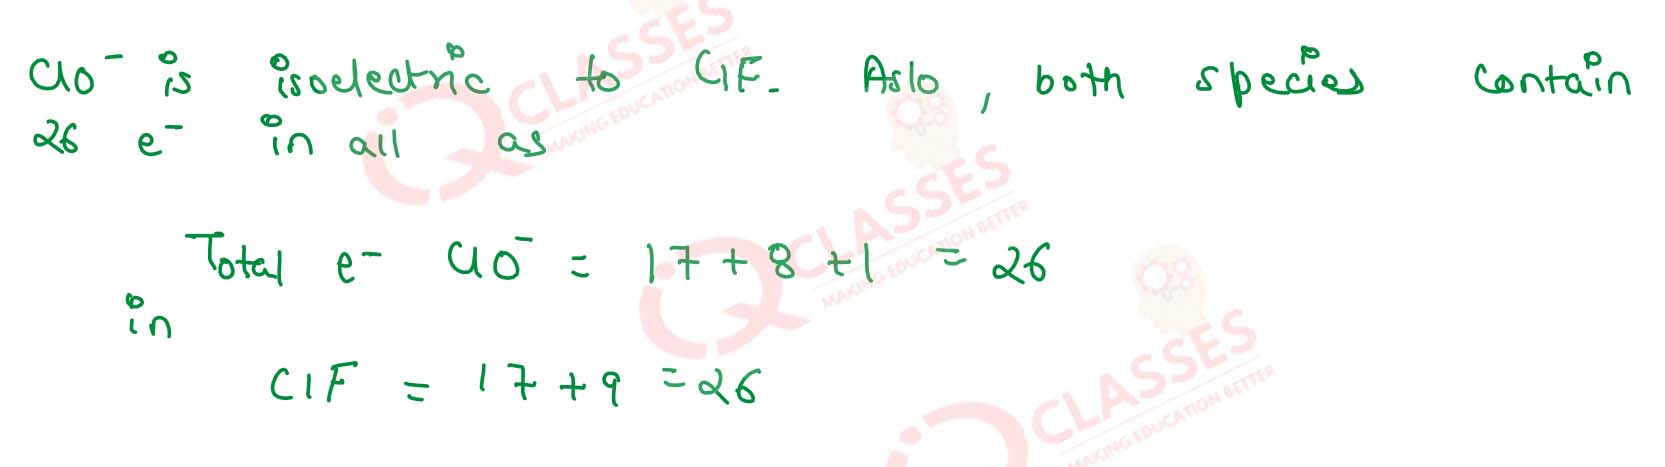 ClO⁻ is isoelectric to ClF. Aslo, both species contain
26 e⁻ in all as
Total e⁻ ClO⁻ = 17 + 8 + 1 = 26
in
ClF = 17 + 9 = 26
CLASSES
MAKING EDUCATION BETTER
CLASSES
MAKING EDUCATION BETTER
CLASSES
MAKING EDUCATION BETTER